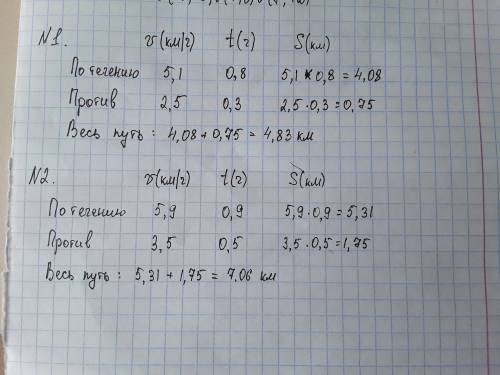 N1. v(км/г) t(г) S(км)
По течению 5,1 0,8 5,1 · 0,8 = 4,08
Против 2,5 0,3 2,5 · 0,3 = 0,75
Весь путь : 4,08 + 0,75 = 4,83 км
N2. v(км/г) t(г) S(км)
По течению 5,9 0,9 5,9 · 0,9 = 5,31
Против 3,5 0,5 3,5 · 0,5 = 1,75
Весь путь : 5,31 + 1,75 = 7.06 км